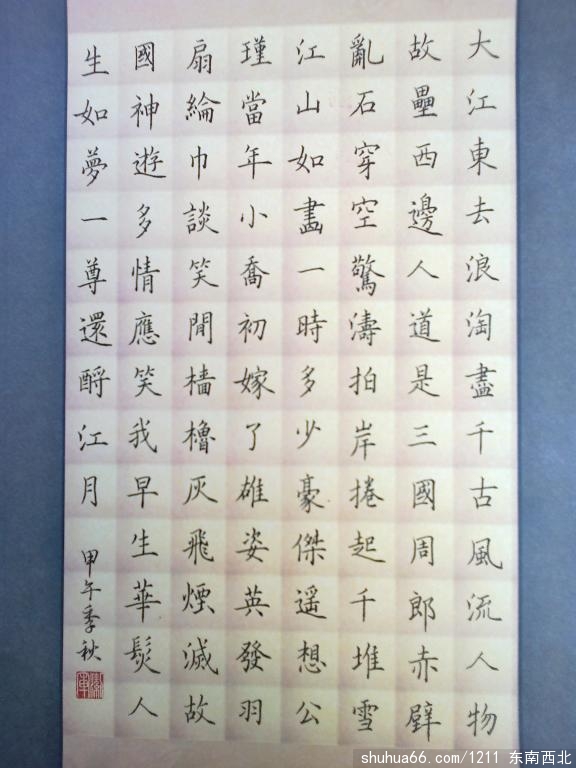 大江東去浪淘盡千古風流人物
故壘西邊人道是三國周郎赤壁
亂石穿空驚濤拍岸捲起千堆雪
江山如畫一時多少豪傑遥想公
瑾當年小喬初嫁了雄姿英發羽
扇綸巾談笑閒檣櫓灰飛煙滅故
國神遊多情應笑我早生華髮人
生如夢一尊還酹江月
甲午季秋
shuhua66.com/1211 东南西北